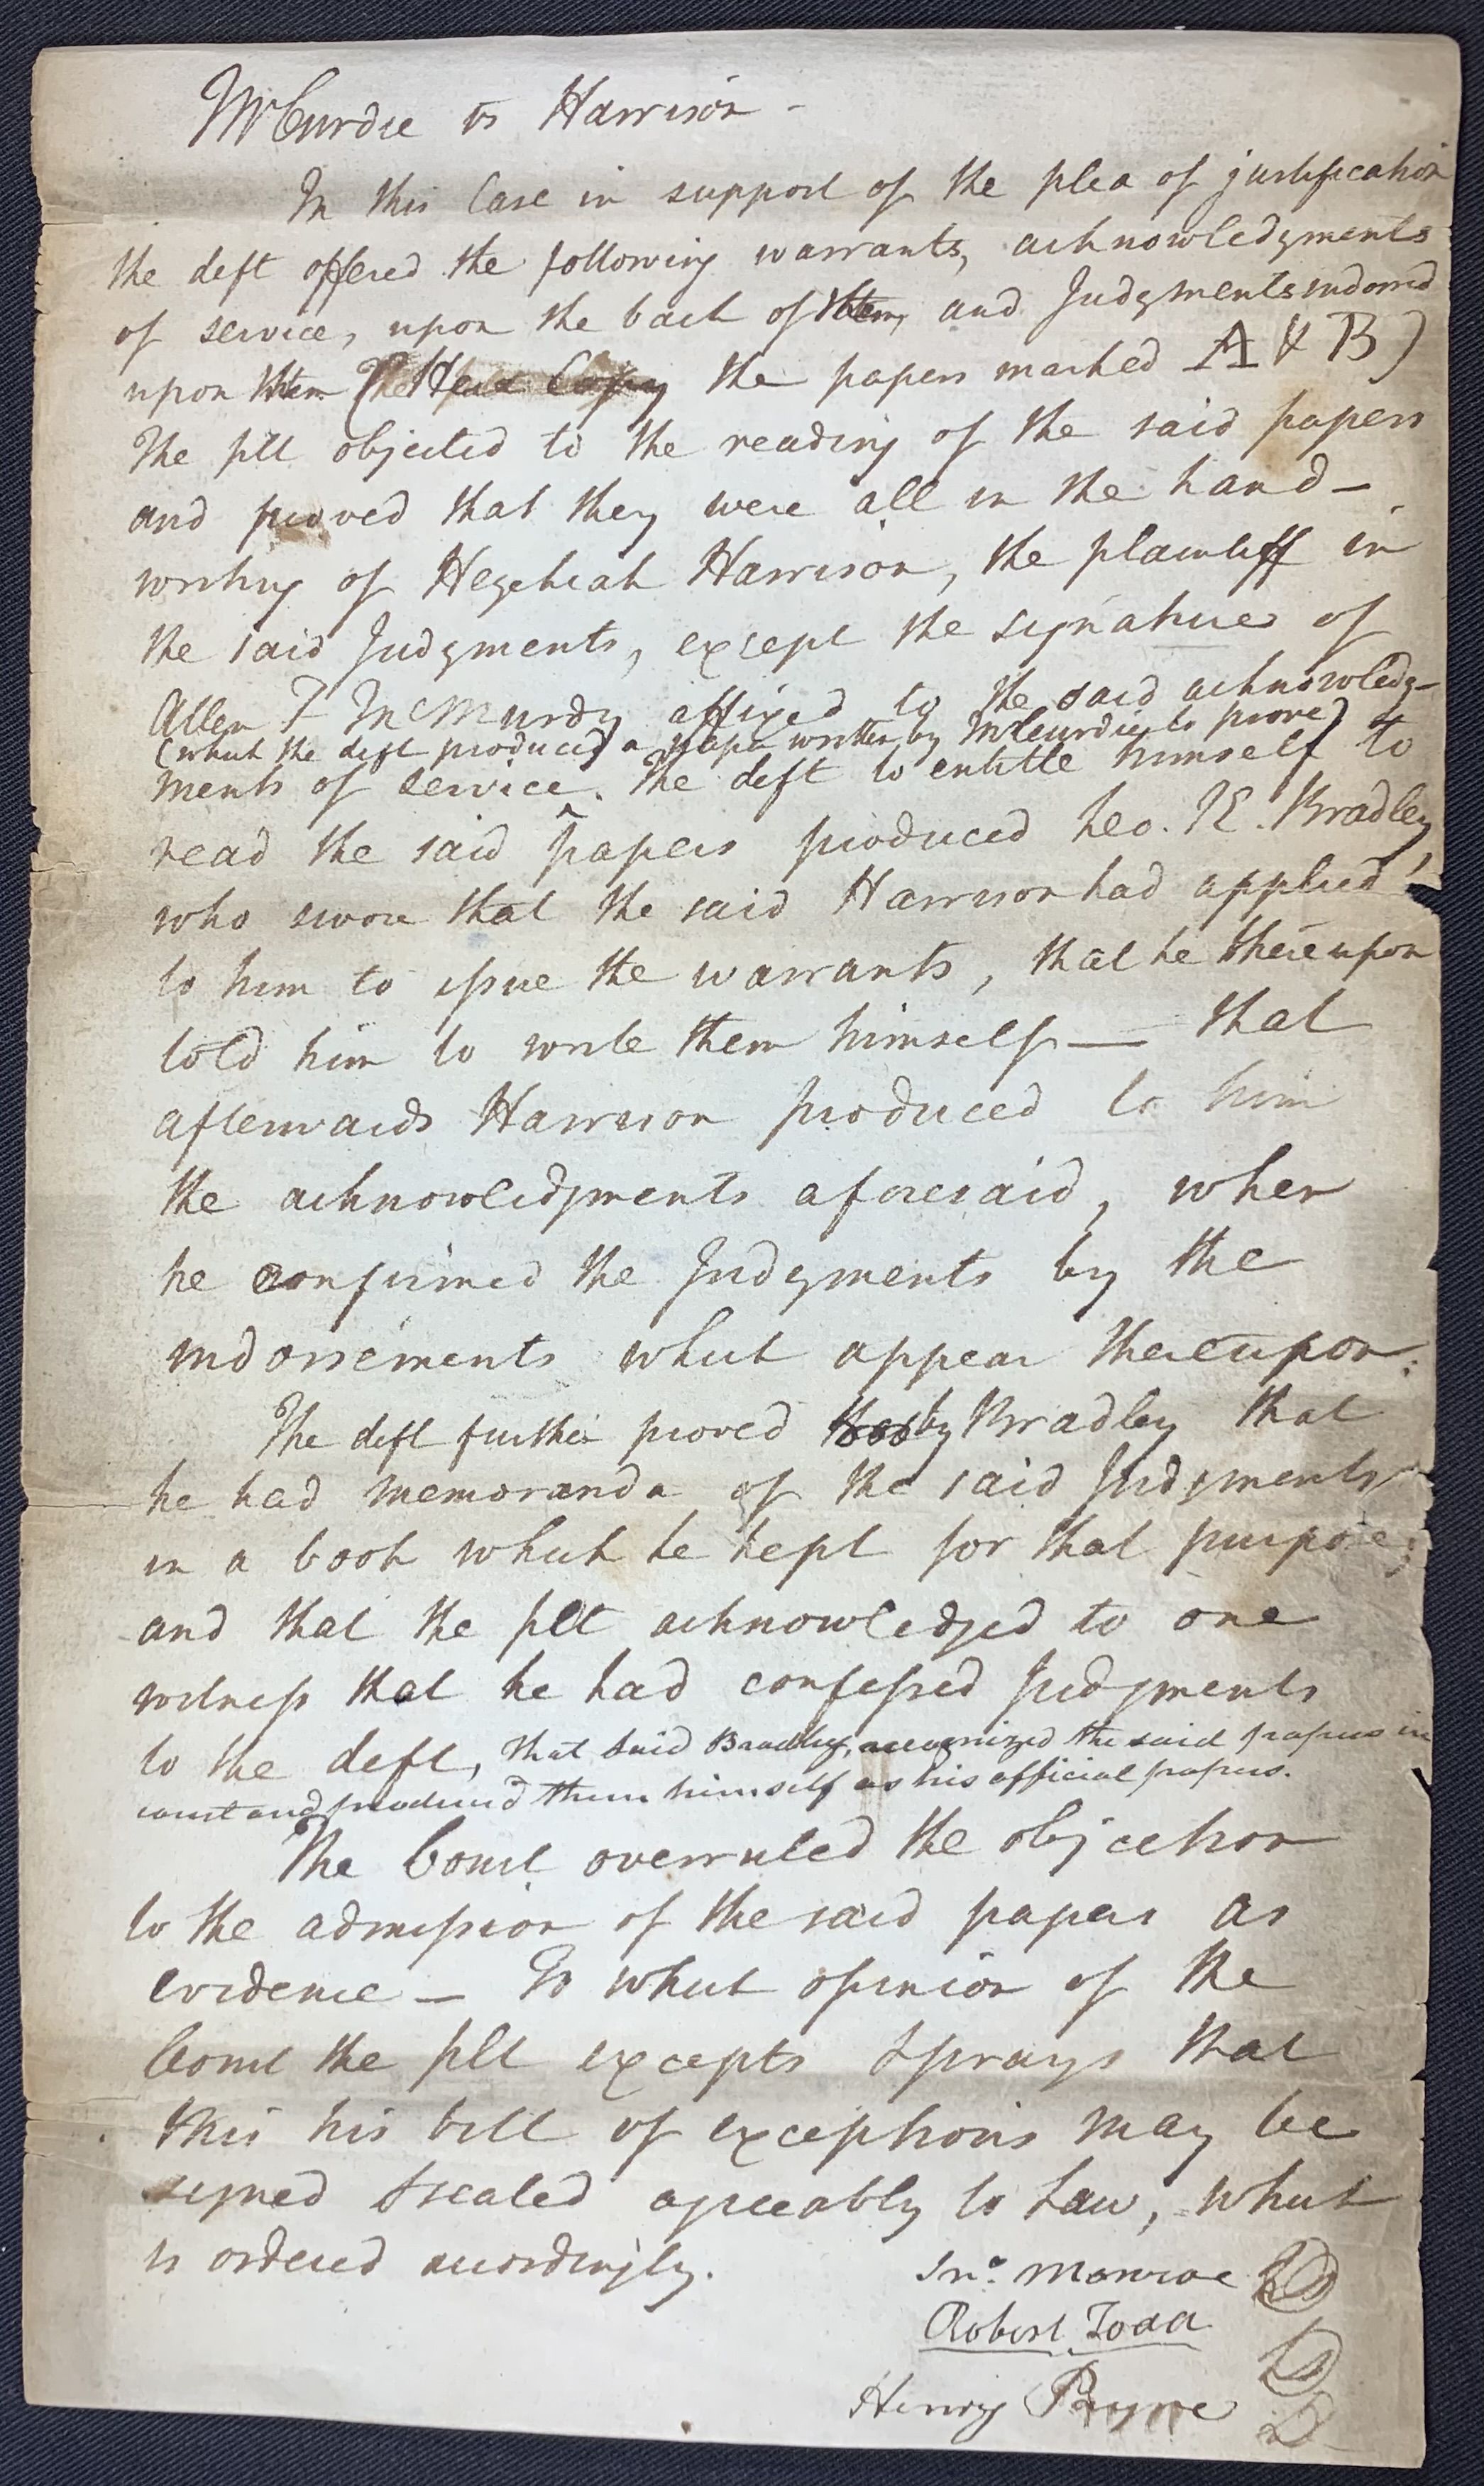 McCurdie vs Harrison -
In this Case in support of the plea of justification
the deft offered the following warrants, acknowledgments
of service, upon the back of them, and Judgments indorsed
upon them (Here Copy the papers marked A & B)
The plt objected to the reading of the said papers
and proved that they were all in the hand-
writing of Hezekiah Harrison, the plaintiff in
the said Judgments, except the signatures of
Allen F McMurdy affixed to the said acknowledg-
(which the deft produced a paper written by McCurdie to prove)
ments of service. The deft to entitle himself to
read the said papers produced Leo. K. Bradley,
who swore that the said Harrison had applied
to him to issue the warrants, that he thereupon
told him to write them himself — that
afterwards Harrison produced to him
the acknowledgments aforesaid, when
he confirmed the Judgments by the
indorsements which appear thereupon.
The deft further proved by Bradley that
he had memoranda of the said Judgments
in a book which he kept for that purpose;
and that the plt acknowledged to one
witness that he had confessed Judgments
to the deft, that said Bradley, recognized the said papers in
court and produced them himself as his official papers.
The Court overruled the objection
to the admission of the said papers as
evidence — To which opinion of the
Court the plt excepts & prays that
this his bill of exceptions may be
signed & sealed agreeably to Law, which
is ordered accordingly.
Jno. Monroe
Robert Todd
Henry Payne